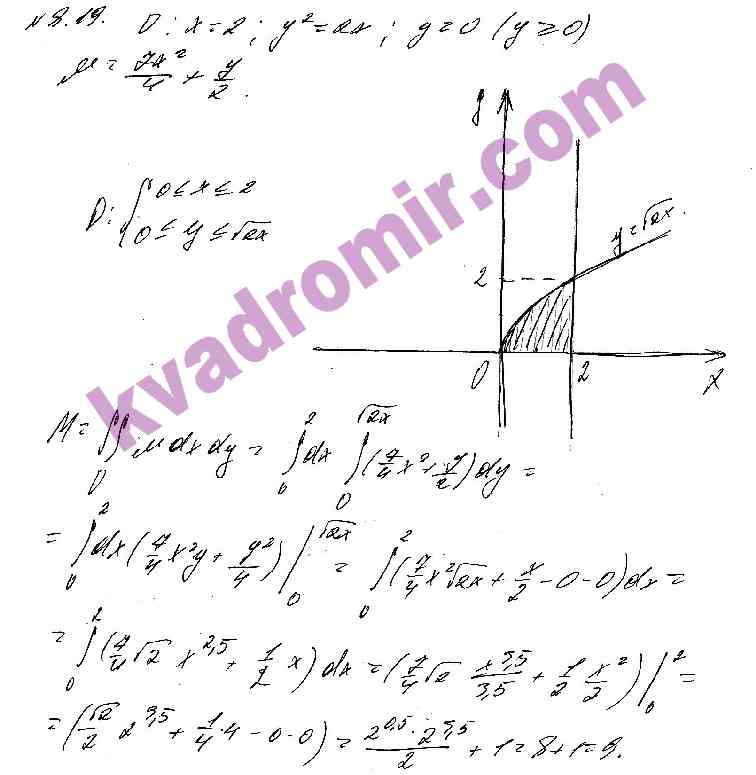 №8.19. D: x=2; y²=2x; y=0 (y≥0)
μ = 7x²/4 + y/2.
y
D: { 0≤x≤2
0≤y≤√2x
y=√2x.
2
0 2 x
kvadromir.com
M = ∬_D μ dx dy = ∫_0^2 dx ∫_0^√2x (7/4 x² + y/2) dy =
= ∫_0^2 dx (7/4 x²y + y²/4) |_0^√2x = ∫_0^2 (7/4 x²√2x + x/2 - 0 - 0) dx =
= ∫_0^2 (7/4 √2 x^2,5 + 1/2 x) dx = (7/4 √2 x^3,5/3,5 + 1/2 x²/2) |_0^2 =
= (√2/2 2^3,5 + 1/4·4 - 0 - 0) = 2^0,5·2^3,5/2 + 1 = 8+1=9.